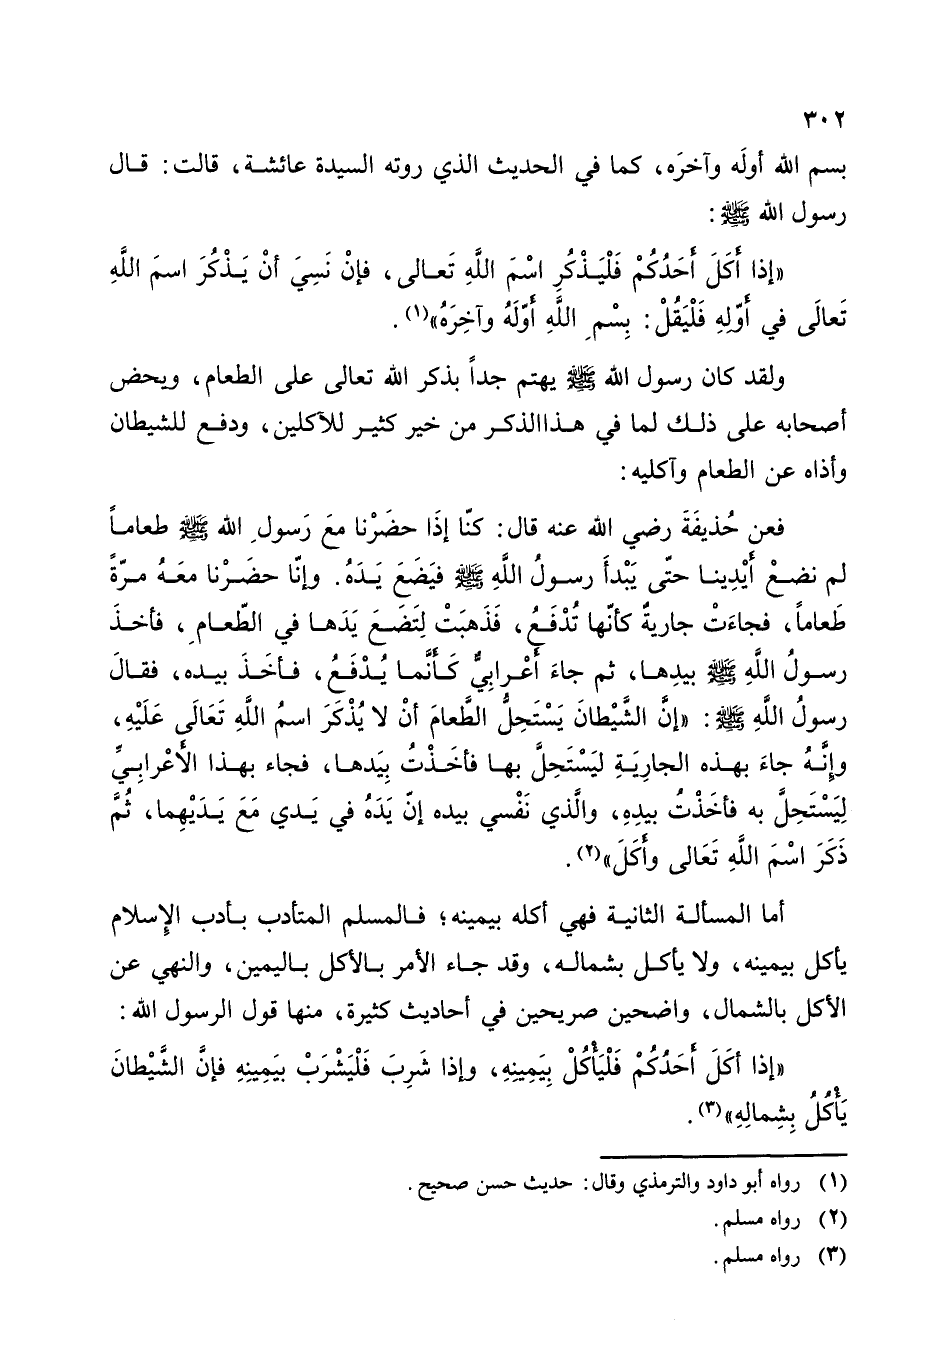 ٣٠٢
بسم الله أولَه وآخرَه، كما في الحديث الذي روته السيدة عائشة، قالت: قال
رسول الله ﷺ:
«إذا أَكَلَ أَحَدُكُمْ فَلْيَذْكُرِ اسْمَ اللَّهِ تَعالى، فإنْ نَسِيَ أنْ يَذْكُرَ اسمَ اللَّهِ
تَعالَى في أَوّلِهِ فَلْيَقُلْ: بِسْمِ اللَّهِ أَوّلَهُ وآخِرَهُ»(١).
ولقد كان رسول الله ﷺ يهتم جداً بذكر الله تعالى على الطعام، ويحض
أصحابه على ذلك لما في هذا الذكر من خير كثير للآكلين، ودفع للشيطان
وأذاه عن الطعام وآكليه:
فعن حُذيفَةَ رضي الله عنه قال: كنّا إذَا حضَرْنا معَ رَسولِ الله ﷺ طعاماً
لم نضعْ أَيْدِينا حتّى يَبْدأَ رسولُ اللَّهِ ﷺ فيَضَعَ يَدَهُ. وإنّا حضَرْنا معَهُ مرّةً
طَعاماً، فجاءَتْ جاريةٌ كأنّها تُدْفَعُ، فَذَهبَتْ لِتَضَعَ يَدَها في الطّعامِ، فأخذَ
رسولُ اللَّهِ ﷺ بيدِها، ثم جاءَ أَعْرابِيٌّ كَأَنَّما يُدْفَعُ، فأخَذَ بيده، فقالَ
رسولُ اللَّهِ ﷺ: «إنَّ الشَّيْطانَ يَسْتَحِلُّ الطَّعامَ أنْ لا يُذْكَرَ اسمُ اللَّهِ تَعَالَى عَلَيْهِ،
وإِنَّهُ جاءَ بهذه الجارِيَةِ ليَسْتَحِلَّ بها فأخَذْتُ بيَدها، فجاء بهذا الأَعْرابيِّ
لِيَسْتَحِلَّ به فأخَذْتُ بيدِهِ، والَّذي نَفْسي بيده إنّ يَدَهُ في يَدي مَعَ يَدَيْهِما، ثُمَّ
ذَكَرَ اسْمَ اللَّهِ تَعَالى وأَكَلَ»(٢).
أما المسألة الثانية فهي أكله بيمينه؛ فالمسلم المتأدب بأدب الإِسلام
يأكل بيمينه، ولا يأكل بشماله، وقد جاء الأمر بالأكل باليمين، والنهي عن
الأكل بالشمال، واضحين صريحين في أحاديث كثيرة، منها قول الرسول الله:
«إذا أكَلَ أَحَدُكُمْ فَلْيَأْكُلْ بِيَمِينِهِ، وإذا شَرِبَ فَلْيَشْرَبْ بيَمِينِهِ فإنَّ الشَّيْطانَ
يَأْكُلُ بِشِمالِهِ»(٣).
(١) رواه أبو داود والترمذي وقال: حديث حسن صحيح.
(٢) رواه مسلم.
(٣) رواه مسلم.